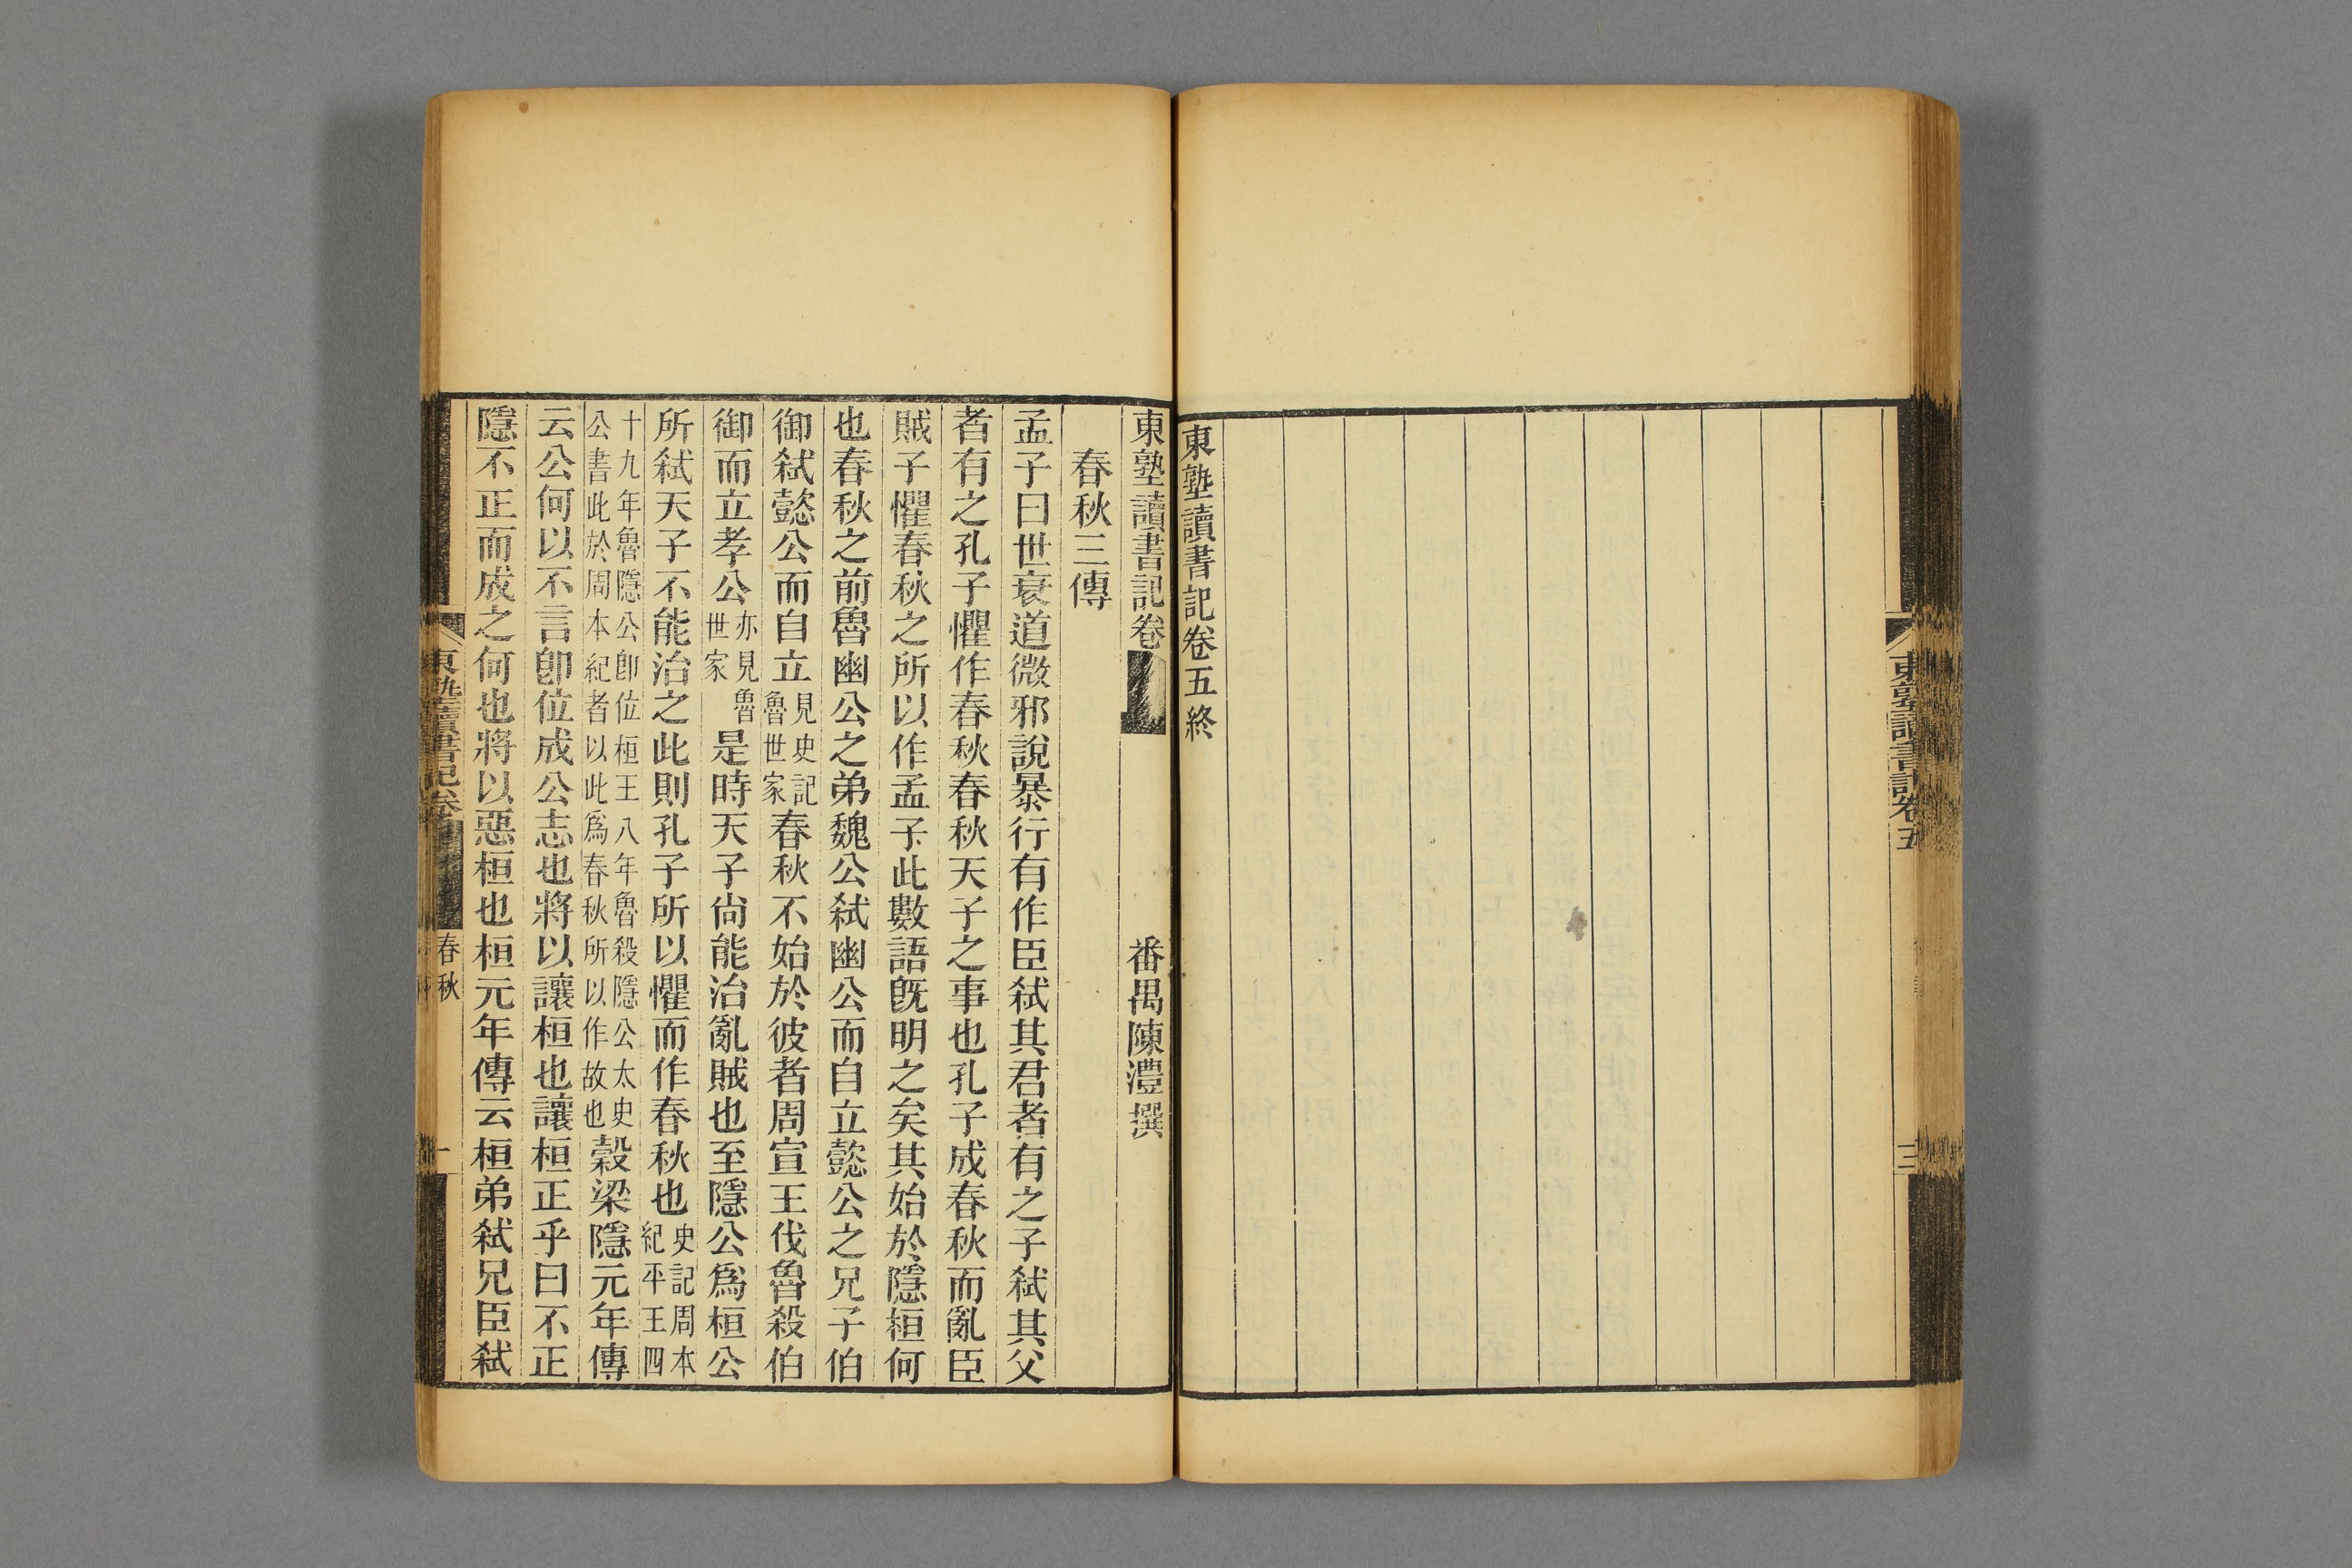 東塾讀書記卷五
三
東塾讀書記卷五終
東塾讀書記卷
番禺陳澧撰
春秋三傳
孟子曰世衰道微邪說暴行有作臣弑其君者有之子弑其父
者有之孔子懼作春秋春秋天子之事也孔子成春秋而亂臣
賊子懼春秋之所以作孟子此數語旣明之矣其始於隱桓何
也春秋之前魯幽公之弟魏公弑幽公而自立懿公之兄子伯
御弑懿公而自立見史記魯世家春秋不始於彼者周宣王伐魯殺伯
御而立孝公亦見魯世家是時天子尙能治亂賊也至隱公爲桓公
所弑天子不能治之此則孔子所以懼而作春秋也史記周本紀平王四
十九年魯隱公卽位桓王八年魯殺隱公太史公書此於周本紀者以此爲春秋所以作故也穀梁隱元年傳
云公何以不言卽位成公志也將以讓桓也讓桓正乎曰不正
隱不正而成之何也將以惡桓也桓元年傳云桓弟弑兄臣弑
東塾讀書記卷
春秋
一